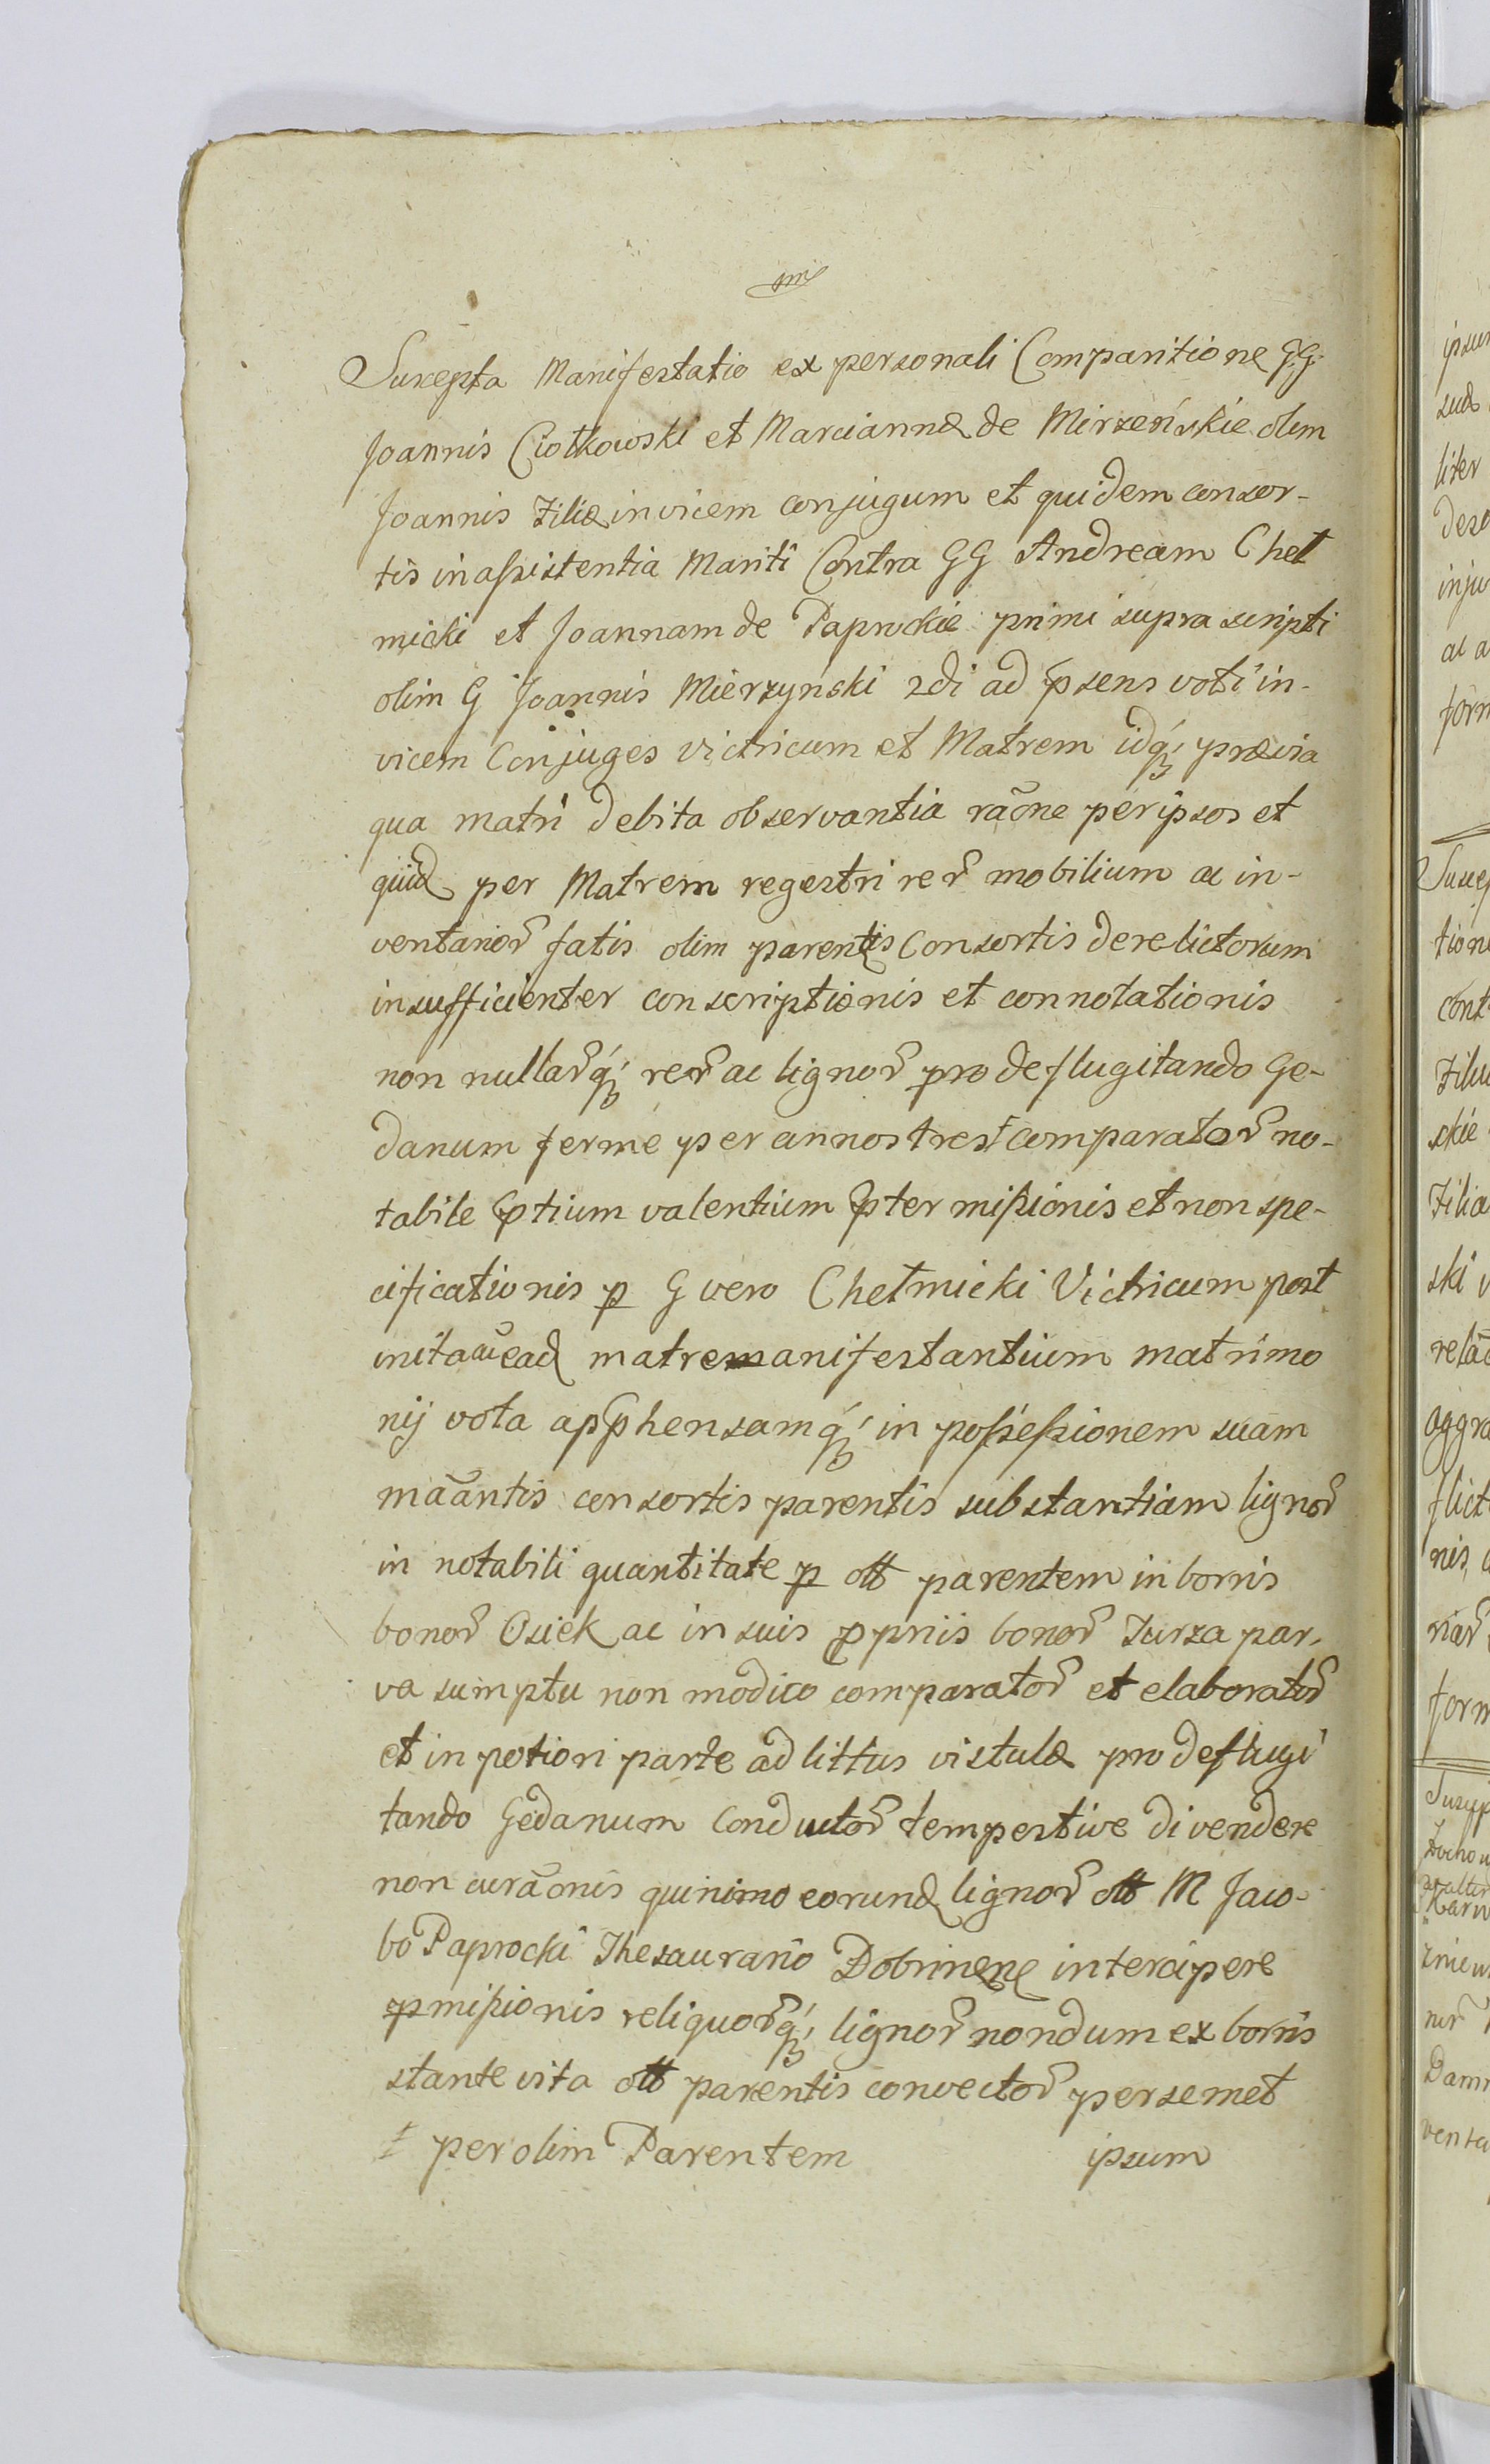 Suscepta Manifestatio ex personali Comparitione GG.
Joannis Ciołkowski et Marciannæ de Mirzeńskie olim
Joannis Filiæ invicem conjugum et quidem consor-
tis in assistentia Mariti Contra GG Andream Cheł
micki et Joannam de Paprockie primi supra scripti
olim G Joannis Mierzyński 2di ad p̃sens voti in-
vicem Conjuges victricum et Matrem idq́; prævia
qua matri debita observantia rãone per ipsos et
quid per Matrem regestri rer̃ mobilium ac in-
ventarior̃ fatis olim parentis Consortis derelictorum
insufficienter conscriptionis et connotationis
non nullar̃q́; rer̃ ac lignor̃ pro deflugitando Ge-
danum ferme per annos tres ‡ comparator̃ no-
tabile p̃tium valentium p̃termissionis et non spe-
cificationis p G vero Chełmicki Victricum post
inita cũ ead matre manifestantium matrimo
nij vota app̃hensamq́; in possessionem suam
mãantis consortis parentis substantiam lignor̃
in notabili quantitate p ott parentem in borris
bonor̃ Osiek ac in suis ppriis bonor̃ Turza par-
va sumptu non modico comparator̃ et elaborator̃
et in potiori parte ad littus vistulæ pro deflugi
tando Gedanum Conductor̃ tempestive divendere
non curãonis quinimo eorund lignor̃ ott M Jaco-
bo Paprocki Thesaurario Dobrinen intercipere
pmissionis reliquor̃q́; lignor̃ nondum ex borris
stante vita ott parentis convector̃ per semet
‡ per olim Parentem ipsum